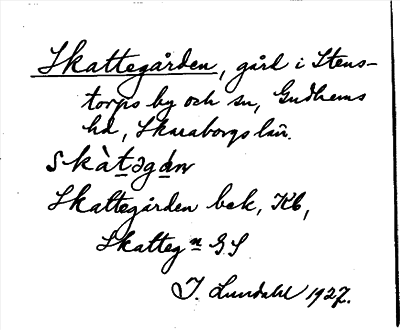 Skattegården, gård i Stens-
torps by och sn, Gudhems
hd, Skaraborgs län.
skàtəgɑ̀n
Skattegården bek, Kb,
Skatteg n GS
J. Lundahl 1927.